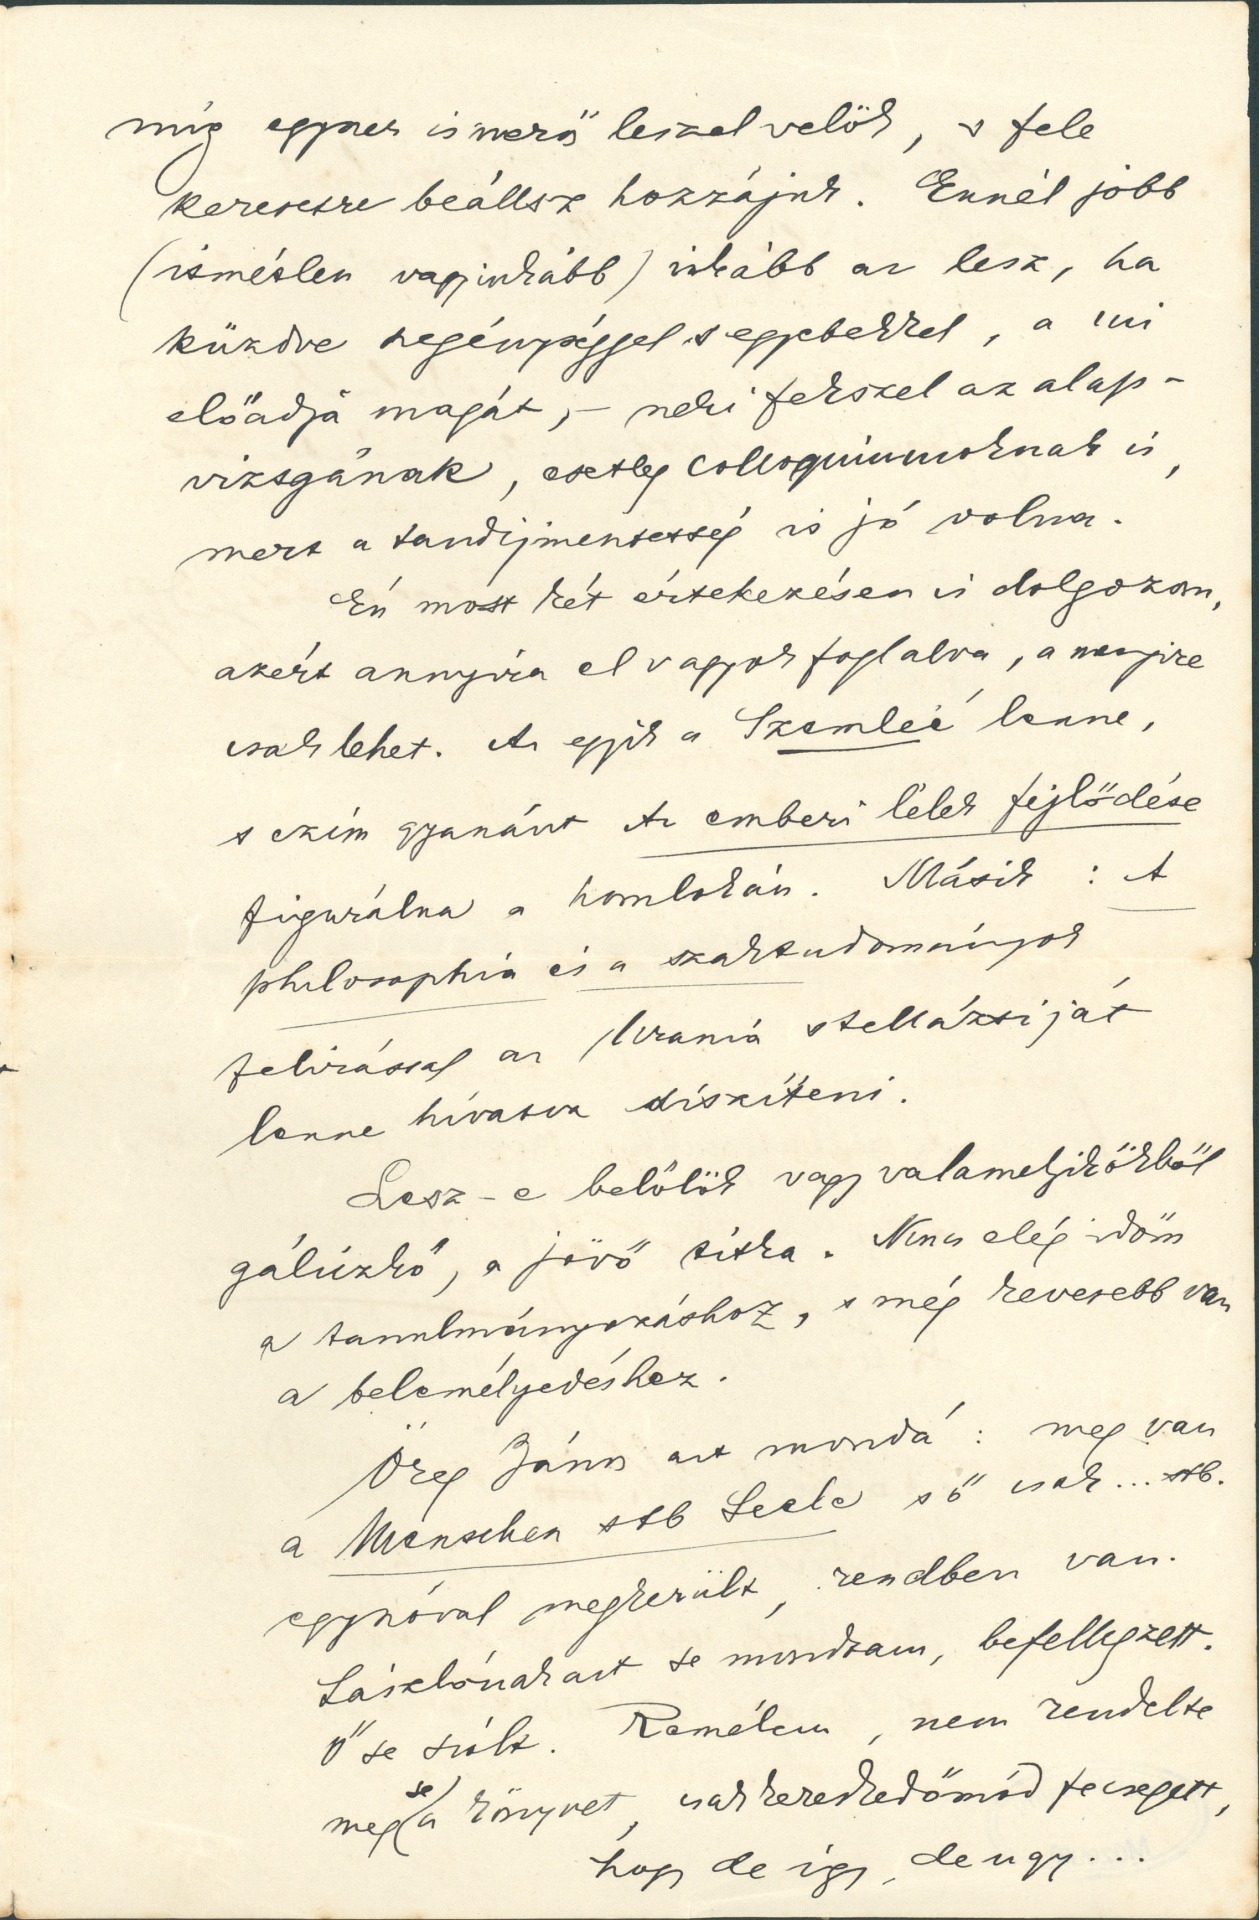 míg egyszer ismerős leszel velök, s fele
keresetre beállsz hozzájuk. Ennél jobb
(ismétlem vagyinkább) inkább az lesz, ha
küzdve szegénységgel s egyebekkel, a mi
előadja magát, – neki fekszel az alap-
vizsgának, esetleg colloquiumoknak is,
mert a tandijmentesség is jó volna.
Én most két értekezésen is dolgozom,
azért annyira el vagyok foglalva, a mennyire
csak lehet. Az egyik a Szemleé lenne,
s czím gyanánt Az emberi lélek fejlődése
figurálna a homlokán. Másik : A
philosophia és a szaktudományok
felirással az Urania stellázsiját
lenne hívatva díszíteni.
Lesz-e belőlök vagy valamelyikőkből
, a jövő titka. Nincs elég időm
a tanulmányozáshoz, s még kevesebb van
a belemélyedéshez.
Öreg János azt mondá : meg van
a Menschen stb Seele s ő csak... stb.
egyszóval megkerült, rendben van.
Lászlónak azt se mondtam, befellegzett.
Ő se szólt. Remélem, nem rendelte
meg se a könyvet, csak kereskedőmód fecsegett,
hogy de így, de ugy...